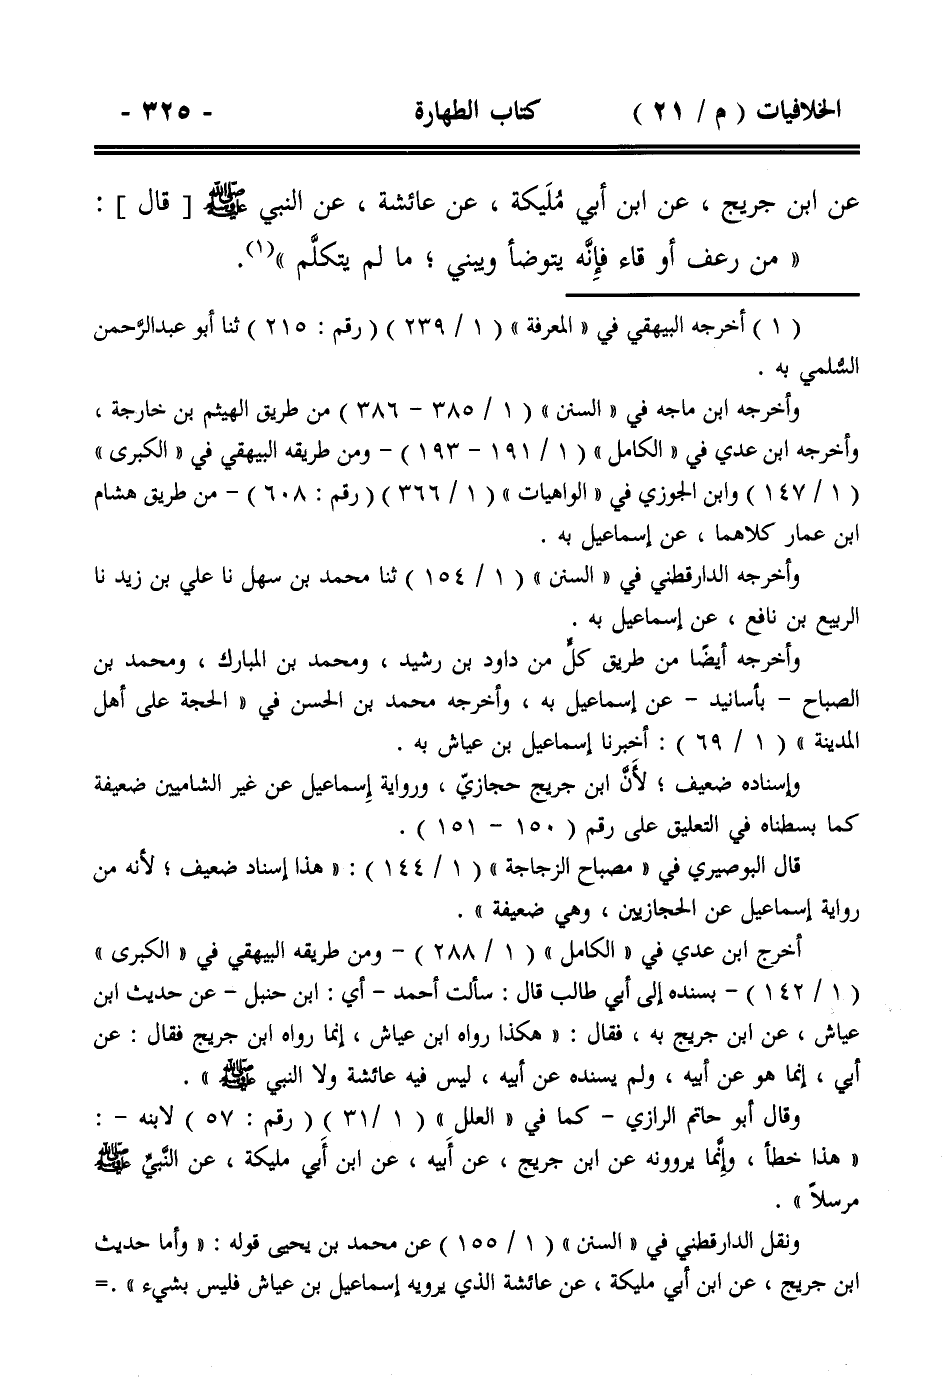 الخلافيات ( م / ٢١ ) كتاب الطهارة - ٣٢٥ -
عن ابن جريج ، عن ابن أبي مُلَيكة ، عن عائشة ، عن النبي ﷺ [ قال ] :
« من رعف أو قاء فإِنَّه يتوضأ ويبني ؛ ما لم يتكلَّم »(١).
( ١ ) أخرجه البيهقي في « المعرفة » ( ١ / ٢٣٩ ) ( رقم : ٢١٥ ) ثنا أبو عبدالرَّحمن
السُّلمي به .
وأخرجه ابن ماجه في « السنن » ( ١ / ٣٨٥ - ٣٨٦ ) من طريق الهيثم بن خارجة ،
وأخرجه ابن عدي في « الكامل » ( ١ / ١٩١ - ١٩٣ ) - ومن طريقه البيهقي في « الكبرى »
( ١ / ١٤٧ ) وابن الجوزي في « الواهيات » ( ١ / ٣٦٦ ) ( رقم : ٦٠٨ ) - من طريق هشام
ابن عمار كلاهما ، عن إسماعيل به .
وأخرجه الدارقطني في « السنن » ( ١ / ١٥٤ ) ثنا محمد بن سهل نا علي بن زيد نا
الربيع بن نافع ، عن إسماعيل به .
وأخرجه أيضًا من طريق كلٌّ من داود بن رشيد ، ومحمد بن المبارك ، ومحمد بن
الصباح - بأسانيد - عن إسماعيل به ، وأخرجه محمد بن الحسن في « الحجة على أهل
المدينة » ( ١ / ٦٩ ) : أخبرنا إسماعيل بن عياش به .
وإسناده ضعيف ؛ لأَنَّ ابن جريج حجازيّ ، ورواية إِسماعيل عن غير الشاميين ضعيفة
كما بسطناه في التعليق على رقم ( ١٥٠ - ١٥١ ) .
قال البوصيري في « مصباح الزجاجة » ( ١ / ١٤٤ ) : « هذا إسناد ضعيف ؛ لأنه من
رواية إسماعيل عن الحجازيين ، وهي ضعيفة » .
أخرج ابن عدي في « الكامل » ( ١ / ٢٨٨ ) - ومن طريقه البيهقي في « الكبرى »
( ١ / ١٤٢ ) - بسنده إلى أبي طالب قال : سألت أحمد - أي : ابن حنبل - عن حديث ابن
عياش ، عن ابن جريج به ، فقال : « هكذا رواه ابن عياش ، إنما رواه ابن جريج فقال : عن
أبي ، إنما هو عن أبيه ، ولم يسنده عن أبيه ، ليس فيه عائشة ولا النبي ﷺ » .
وقال أبو حاتم الرازي - كما في « العلل » ( ١ /٣١ ) ( رقم : ٥٧ ) لابنه - :
« هذا خطأ ، وإِنَّما يروونه عن ابن جريج ، عن أَبيه ، عن ابن أَبي مليكة ، عن النَّبيِّ ﷺ
مرسلاً » .
ونقل الدارقطني في « السنن » ( ١ / ١٥٥ ) عن محمد بن يحيى قوله : « وأما حديث
ابن جريج ، عن ابن أبي مليكة ، عن عائشة الذي يرويه إسماعيل بن عياش فليس بشيء » .=